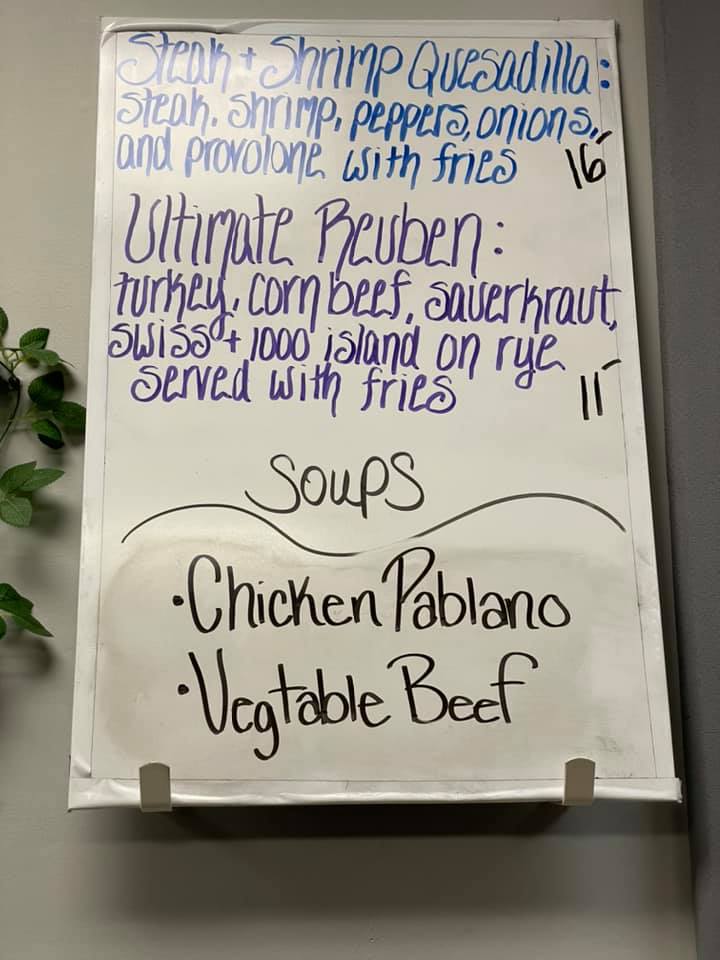 Steak + Shrimp Quesadilla:
steak, shrimp, peppers, onions,
and provolone with fries 16
Ultimate Reuben:
turkey, corn beef, sauerkraut,
swiss + 1000 island on rye
served with fries 11
Soups
• Chicken Pablano
• Vegtable Beef